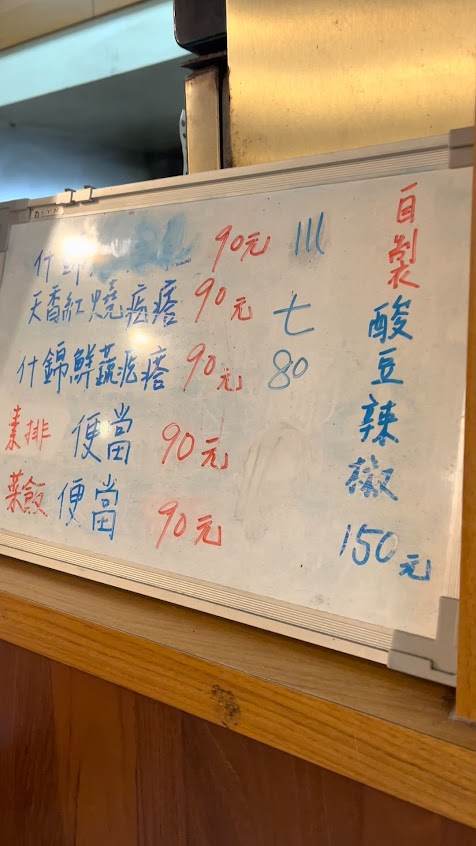 什錦 90元 川
天香紅燒疙瘩 90元 七
什錦鮮蔬疙瘩 90元 80
素排 便當 90元
菜飯 便當 90元
自製酸豆辣椒 150元